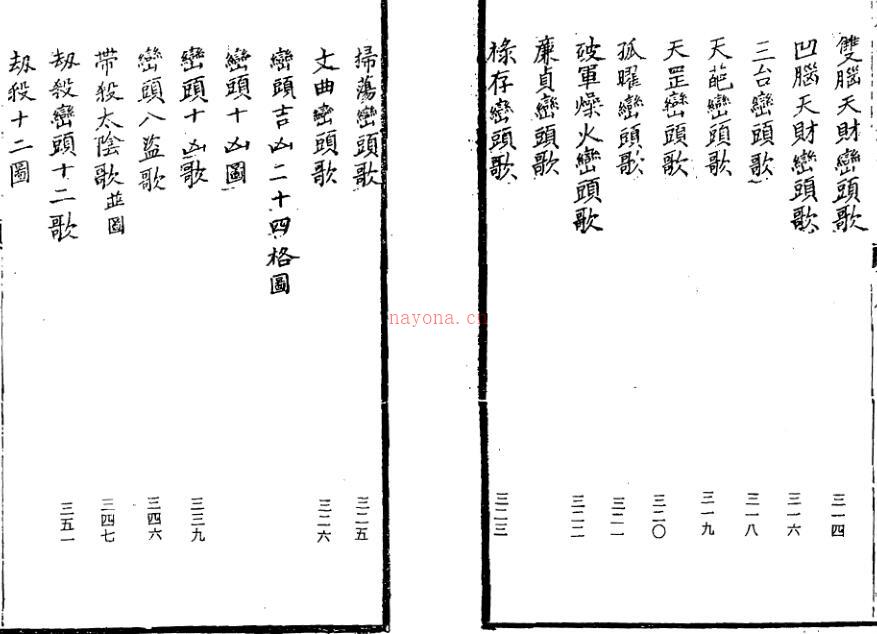 雙腦天財巒頭歌 三一四
凹腦天財巒頭歌 三一六
三台巒頭歌 三一八
天葩巒頭歌 三一九
天罡巒頭歌 三二〇
孤曜巒頭歌 三二一
破軍燥火巒頭歌 三二二
廉貞巒頭歌
祿存巒頭歌 三二三
掃蕩巒頭歌 三二五
文曲巒頭歌 三二六
巒頭吉凶二十四格圖
巒頭十凶圖
巒頭十凶歌 三三九
巒頭八盜歌 三四六
帶殺太陰歌並圖 三四七
劫殺巒頭十二歌 三五一
劫殺十二圖
nayona.cn